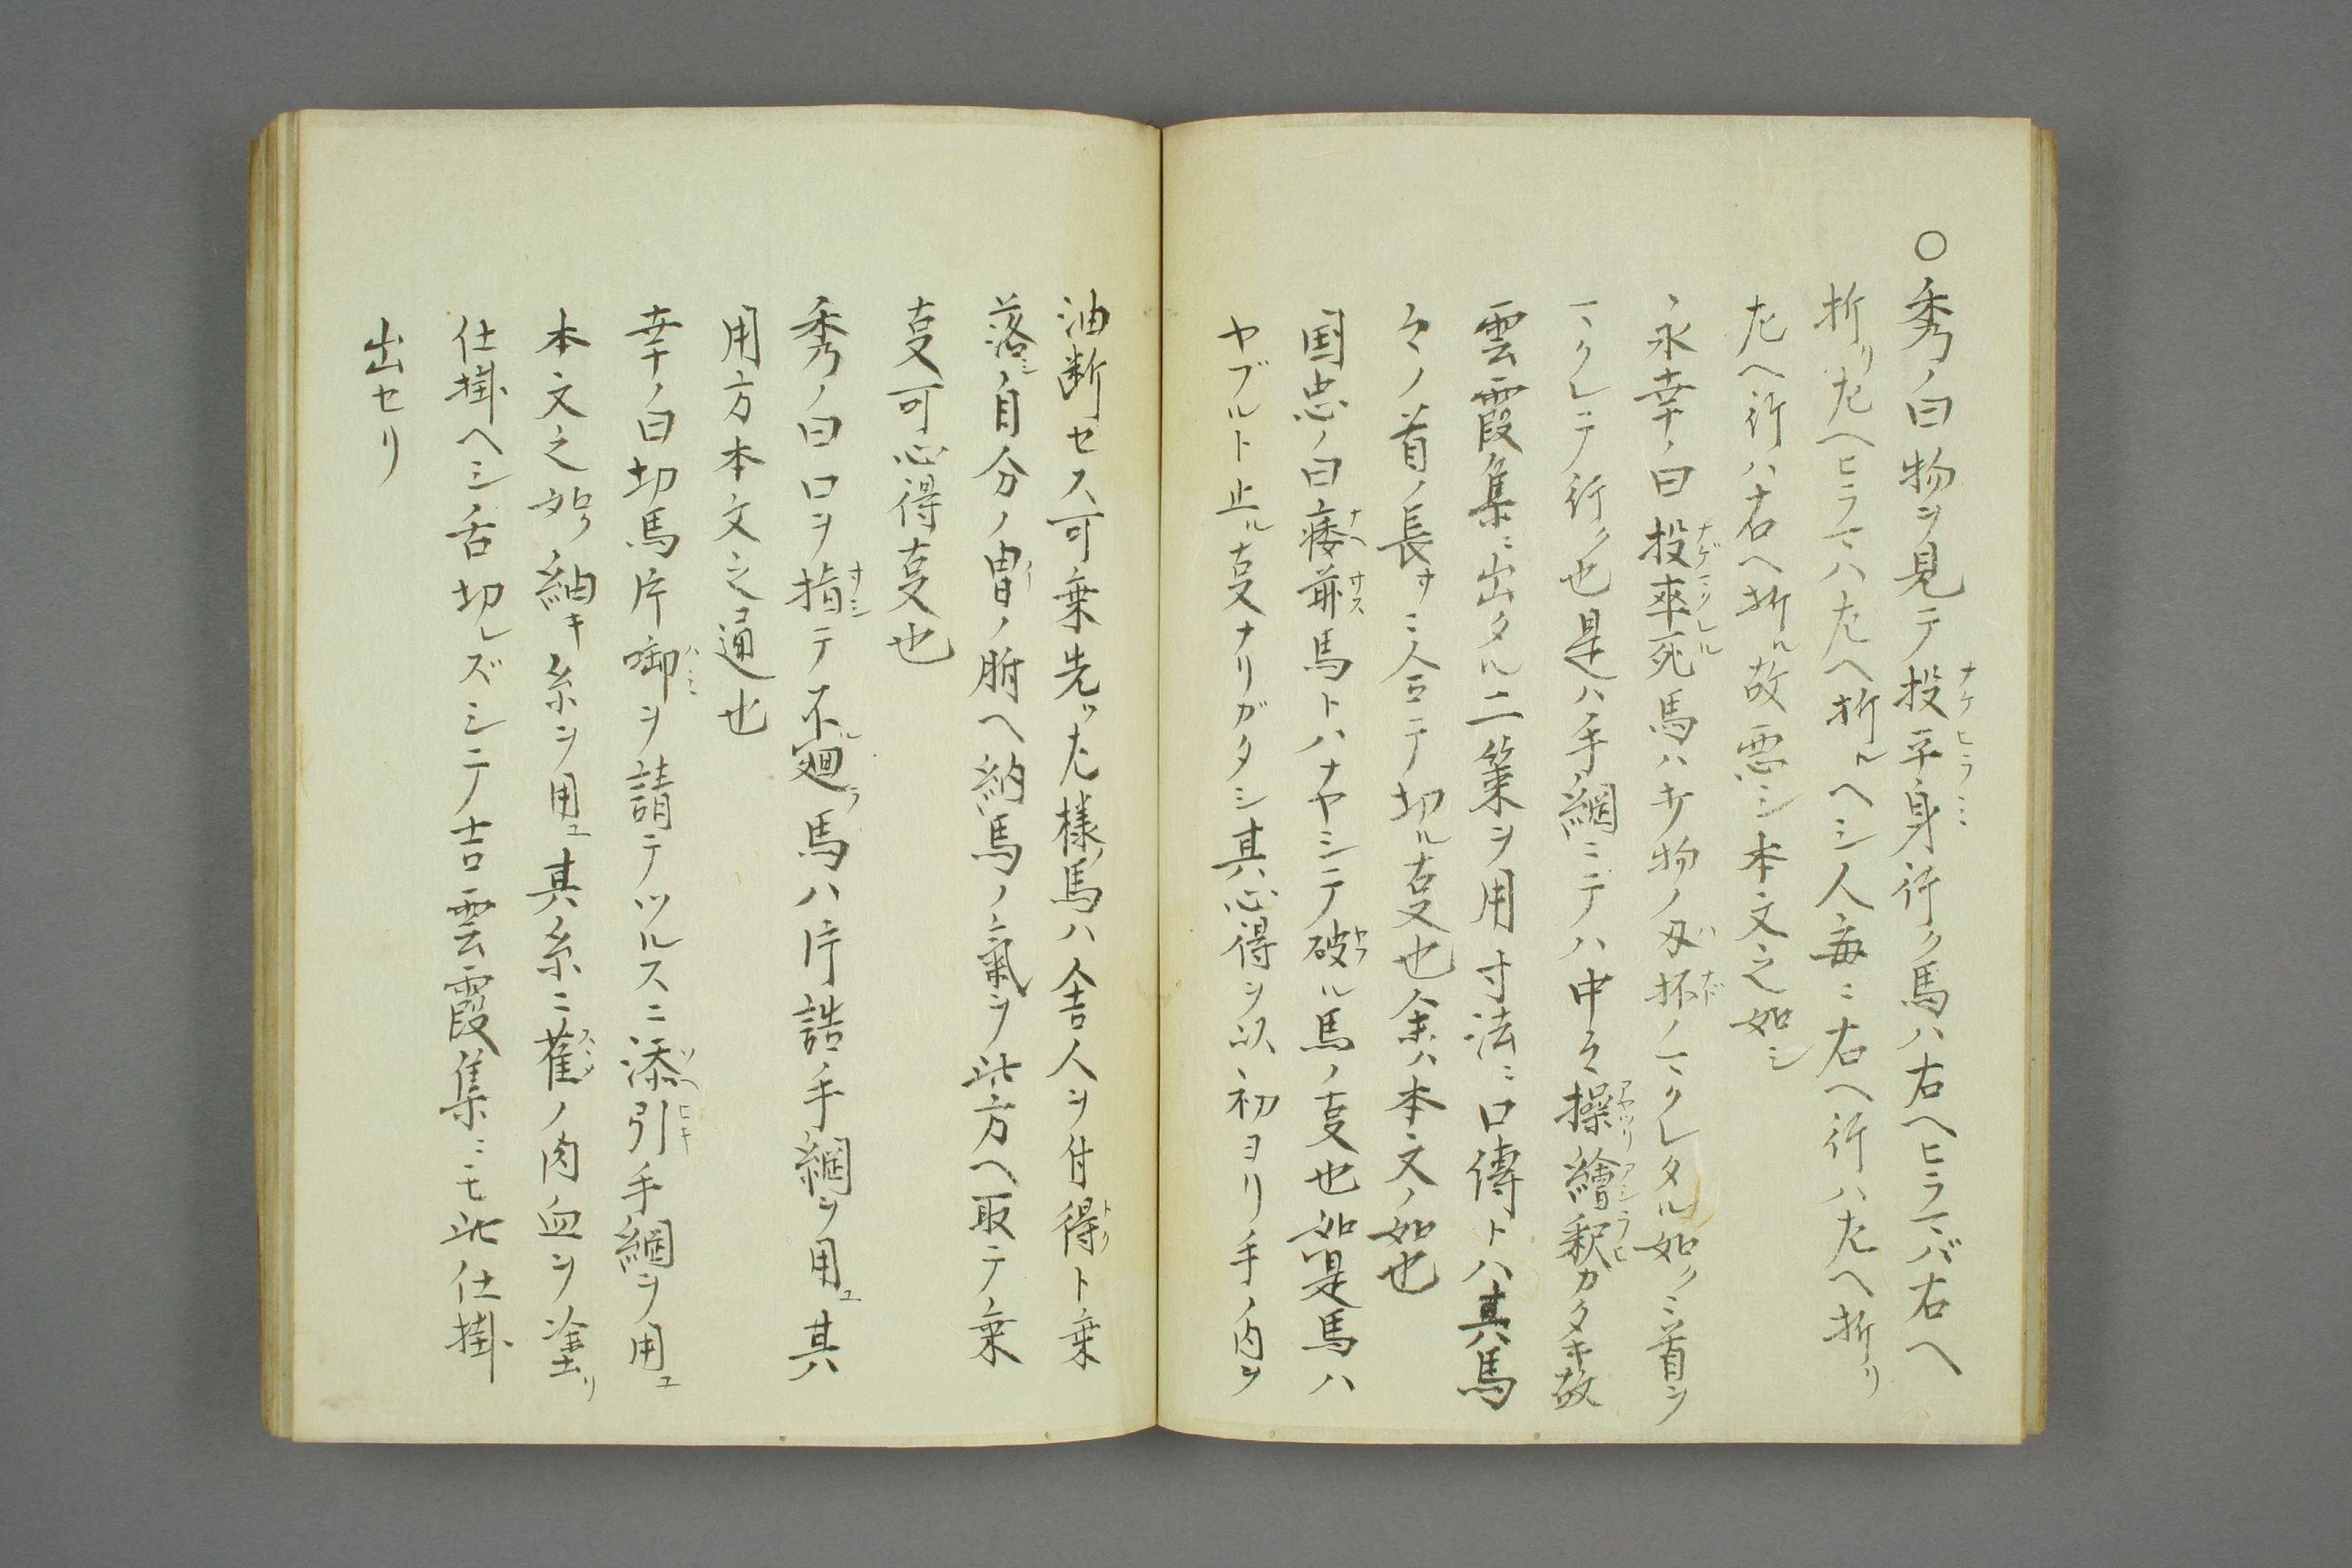 ○秀ノ曰物ヲ見テ投平身行ク馬ハ右ヘヒラマバ右ヘ
折リ左ヘヒラマハ左ヘ折ルヘシ人毎ニ右ヘ行ハ左ヘ折リ
左ヘ行ハ右ヘ折ル故悪シ本文之如シ
永幸ノ曰投率死馬ハキ物ノ刄抔ノマクレタル如クニ首ヲ
マクレテ行ク也是ハ手綱ニテハ中々操繪釈カタキ故
雲霞集ニ出タル二策ヲ用寸法ニ口傳トハ其馬
々ノ首ノ長サニ合テ切ル叓也余ハ本文ノ如也
国忠ノ曰痿莽馬トハナヤシテ破ル馬ノ叓也如是馬ハ
ヤブルト止ル叓ナリガタシ其心得ヲ以初ヨリ手ノ内ヲ
油断セス可乗先ッ左様馬ハ舎人ヲ付得ト乗
落シ自分ノ冑ノ腑ヘ納馬ノ氣ヲ此方ヘ取テ乗
叓可心得叓也
秀ノ曰口ヲ指テ不廻馬ハ片誥手綱ヲ用ユ其
用方本文之通也
幸ノ曰切馬片啣ヲ請テツルスニ添引手綱ヲ用ユ
本文之如ク紬キ糸ヲ用ユ其糸ニ雀ノ肉血ヲ塗リ
仕掛ヘシ舌切レズシテ吉雲霞集ニモ此仕掛
出セリ